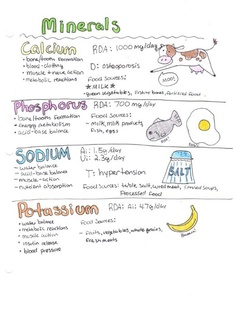 Minerals
Calcium RDA: 1000 mg/day
• bone/tooth formation
• blood-clotting
• muscle + nerve action
• metabolic reactions
D: osteoporosis
Food Sources:
*MILK*
green vegetables, fortified
MOO!
Phosphorus RDA: 700 mg/day
• bone/tooth formation
• energy metabolism
• acid-base balance
Food Sources:
- milk, milk products
Fish, eggs
SODIUM Ai: 1.5g/day
Ui: 2.3g/day
- water balance
- acid-base balance
- muscle-action
- nutrient absorption
T: hypertension
Food Sources: table salt, cured meat, canned soups,
Processed food
SALT
Potassium RDA: Ai: 4.7g/day
- water balance
- metabolic reactions
- muscle action
- insulin release
- blood pressure
Food Sources:
- Fruits, vegetables, whole grains,
Fresh meats